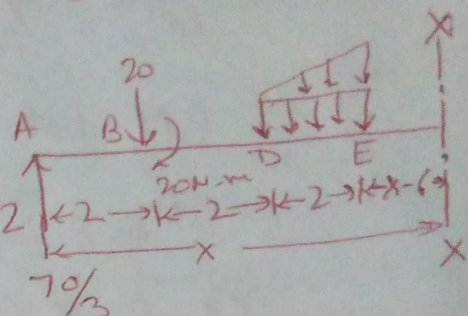 X
20
A B
D E
20N-m
2 2 2 2 X-6
X X
70/3